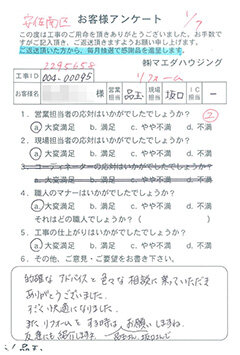 安佐南区 お客様アンケート 1/7
この度は工事のご用命を頂きありがとうございました。お手数で
すがご記入頂き、ご返送頂きますようお願い申し上げます。
ご返送頂いた方から、毎月抽選で感謝品を進呈します。
2295658 ㈱マエダハウジング
工事ID 004-00095 リフォーム
お客様名 様 営業担当 品玉 現場担当 坂口 IC担当 ー
1. 営業担当者の応対はいかがでしたでしょうか? ②
ⓐ大変満足 b. 満足 c. やや不満 d. 不満
2. 現場担当者の応対はいかがでしたでしょうか?
ⓐ大変満足 b. 満足 c. やや不満 d. 不満
3. コーディネーターの応対はいかがでしたでしょうか?
a. 大変満足 b. 満足 c. やや不満 d. 不満
4. 職人のマナーはいかがでしたでしょうか?
ⓐ大変満足 b. 満足 c. やや不満 d. 不満
それはどの職人でしょうか?( )
5. 工事の仕上がりはいかがでしたでしょうか?
ⓐ大変満足 b. 満足 c. やや不満 d. 不満
6. その他、ご意見・ご要望をお書き下さい。
的確なアドバイスと色々な相談に乗っていただき
ありがとうございました。
すごく快適になりました。
またリフォームをする時はお願いしますね。
友達にも紹介します